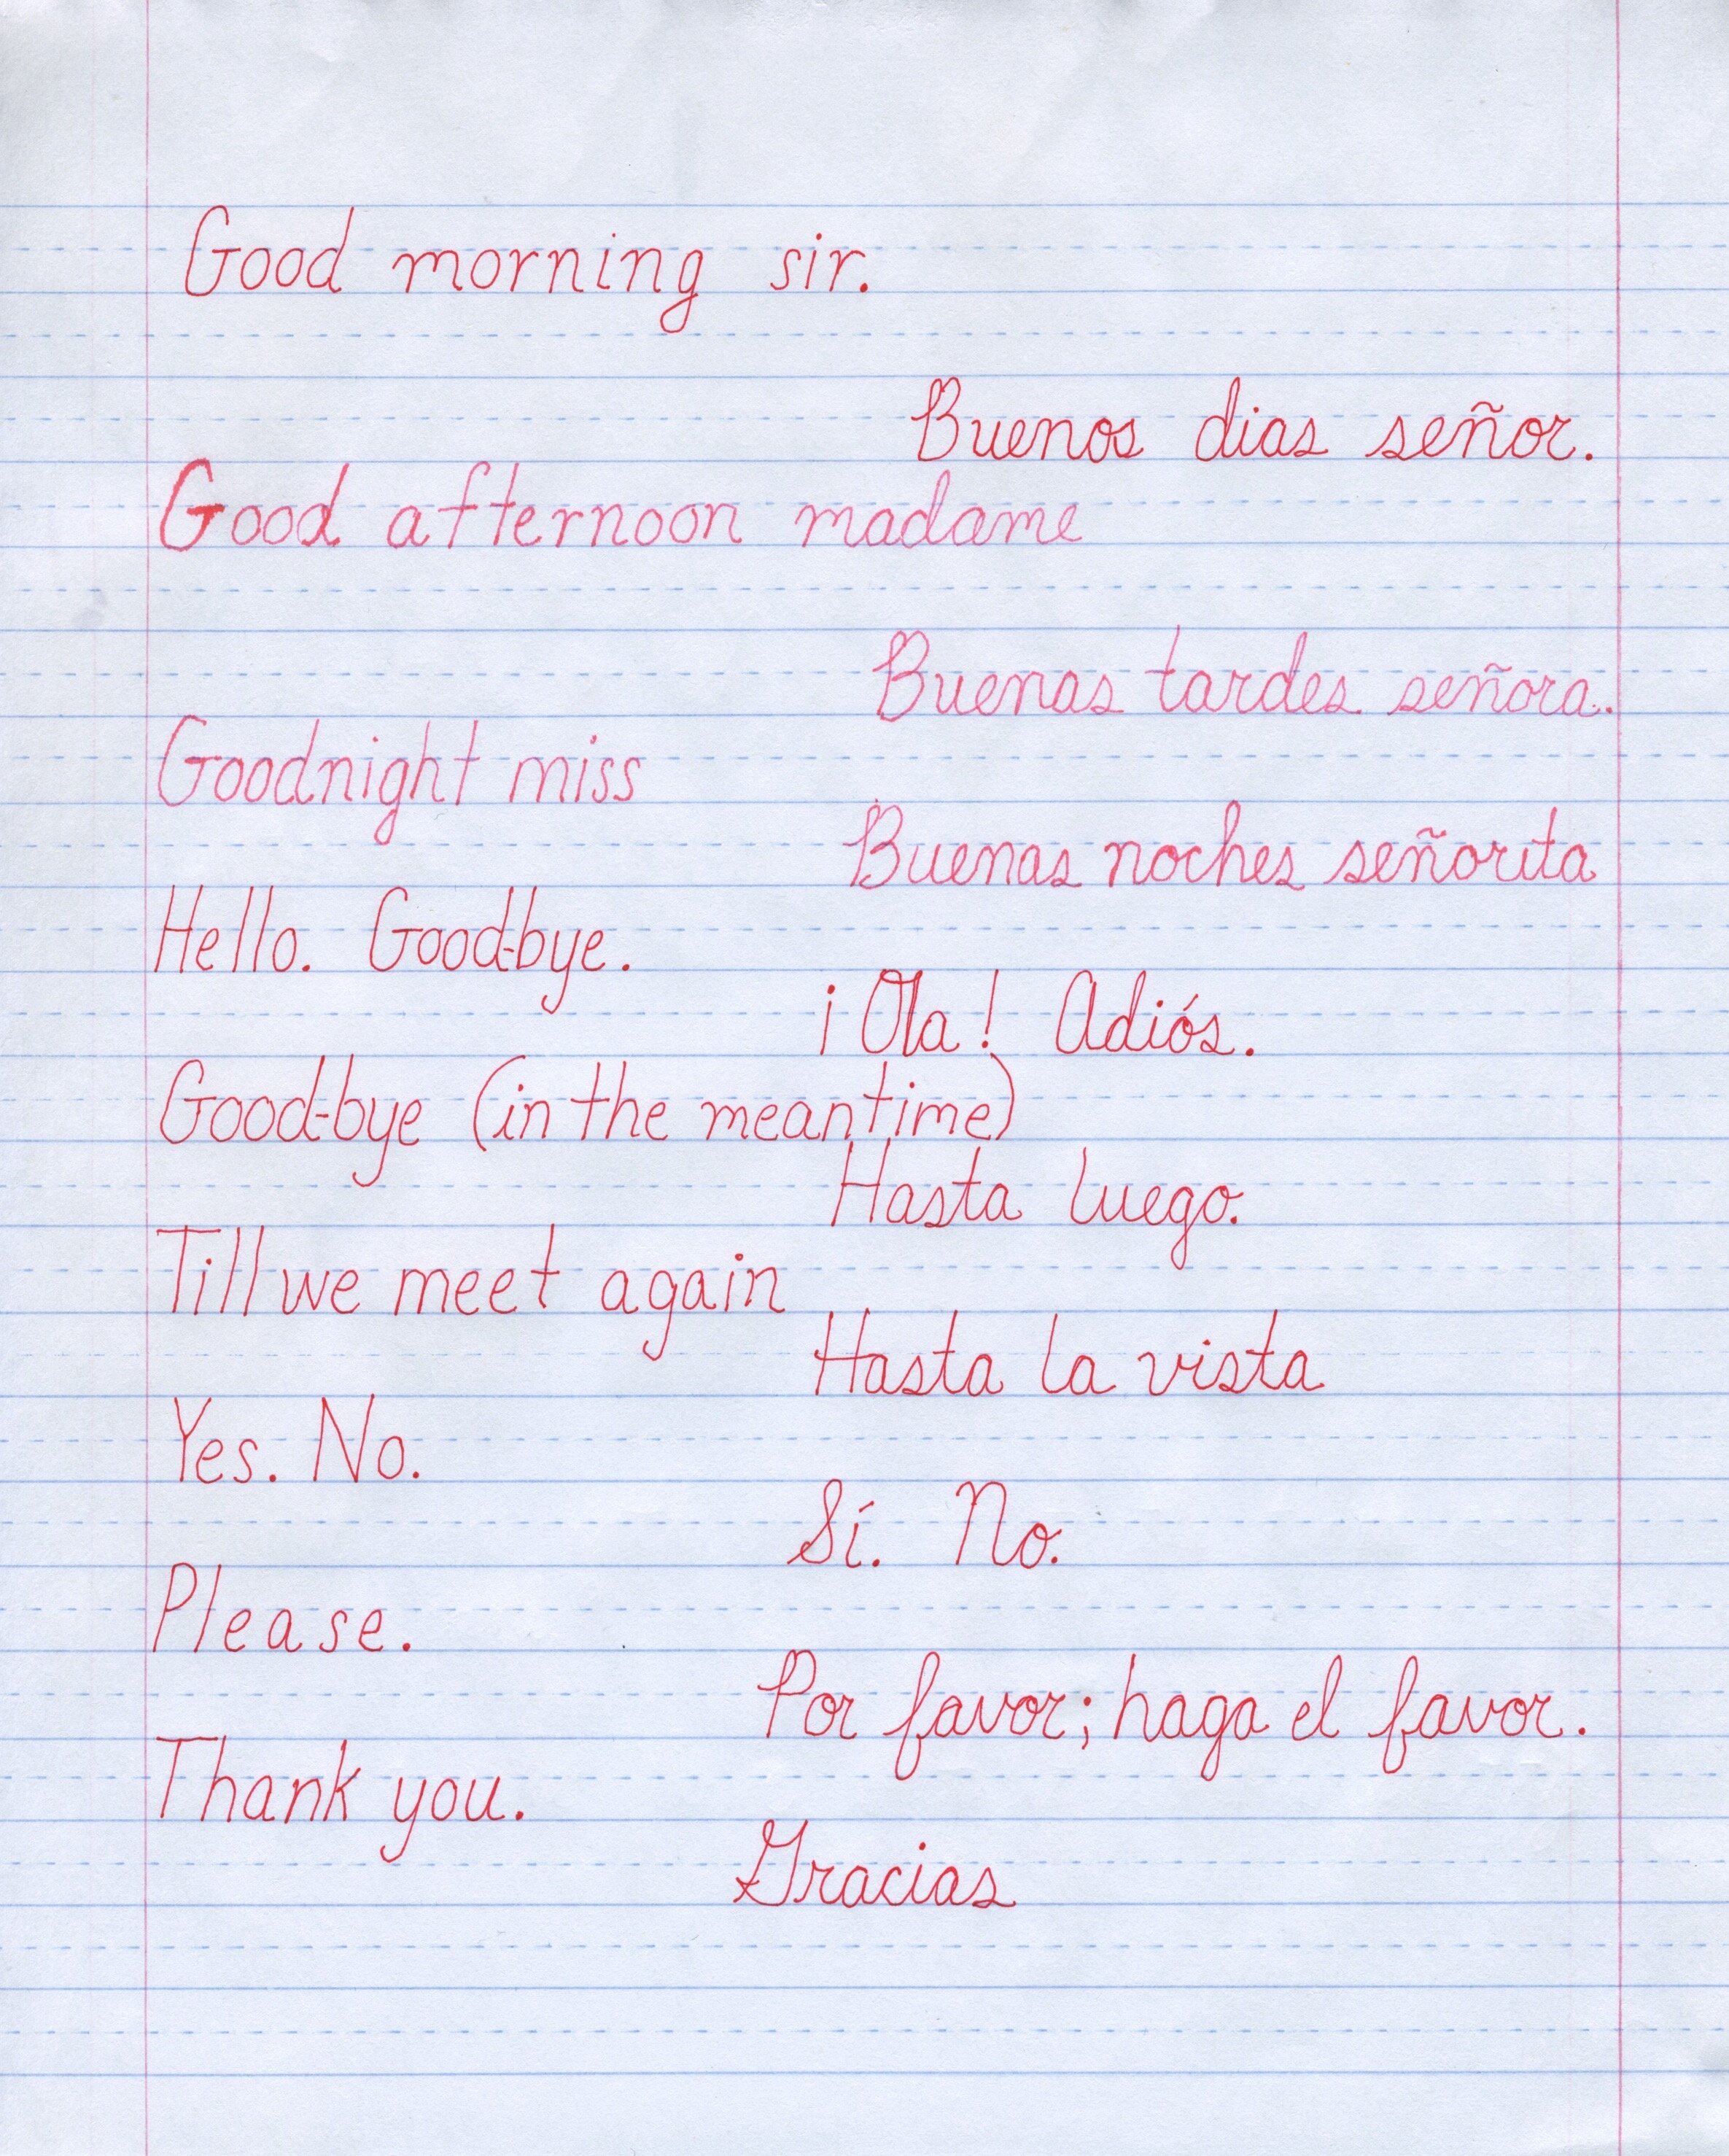 Good morning sir.
Buenos dias señor.
Good afternoon madame
Buenas tardes señora.
Goodnight miss
Buenas noches señorita
Hello. Good-bye.
¡Ola! Adiós.
Good-bye (in the meantime)
Hasta luego.
Till we meet again
Hasta la vista
Yes. No.
Sí. No.
Please.
Por favor; haga el favor.
Thank you.
Gracias